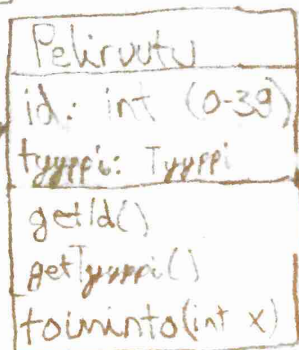 Peliruutu
id: int (0-39)
tyyppi: Tyyppi
getId()
getTyyppi()
toiminto(int x)